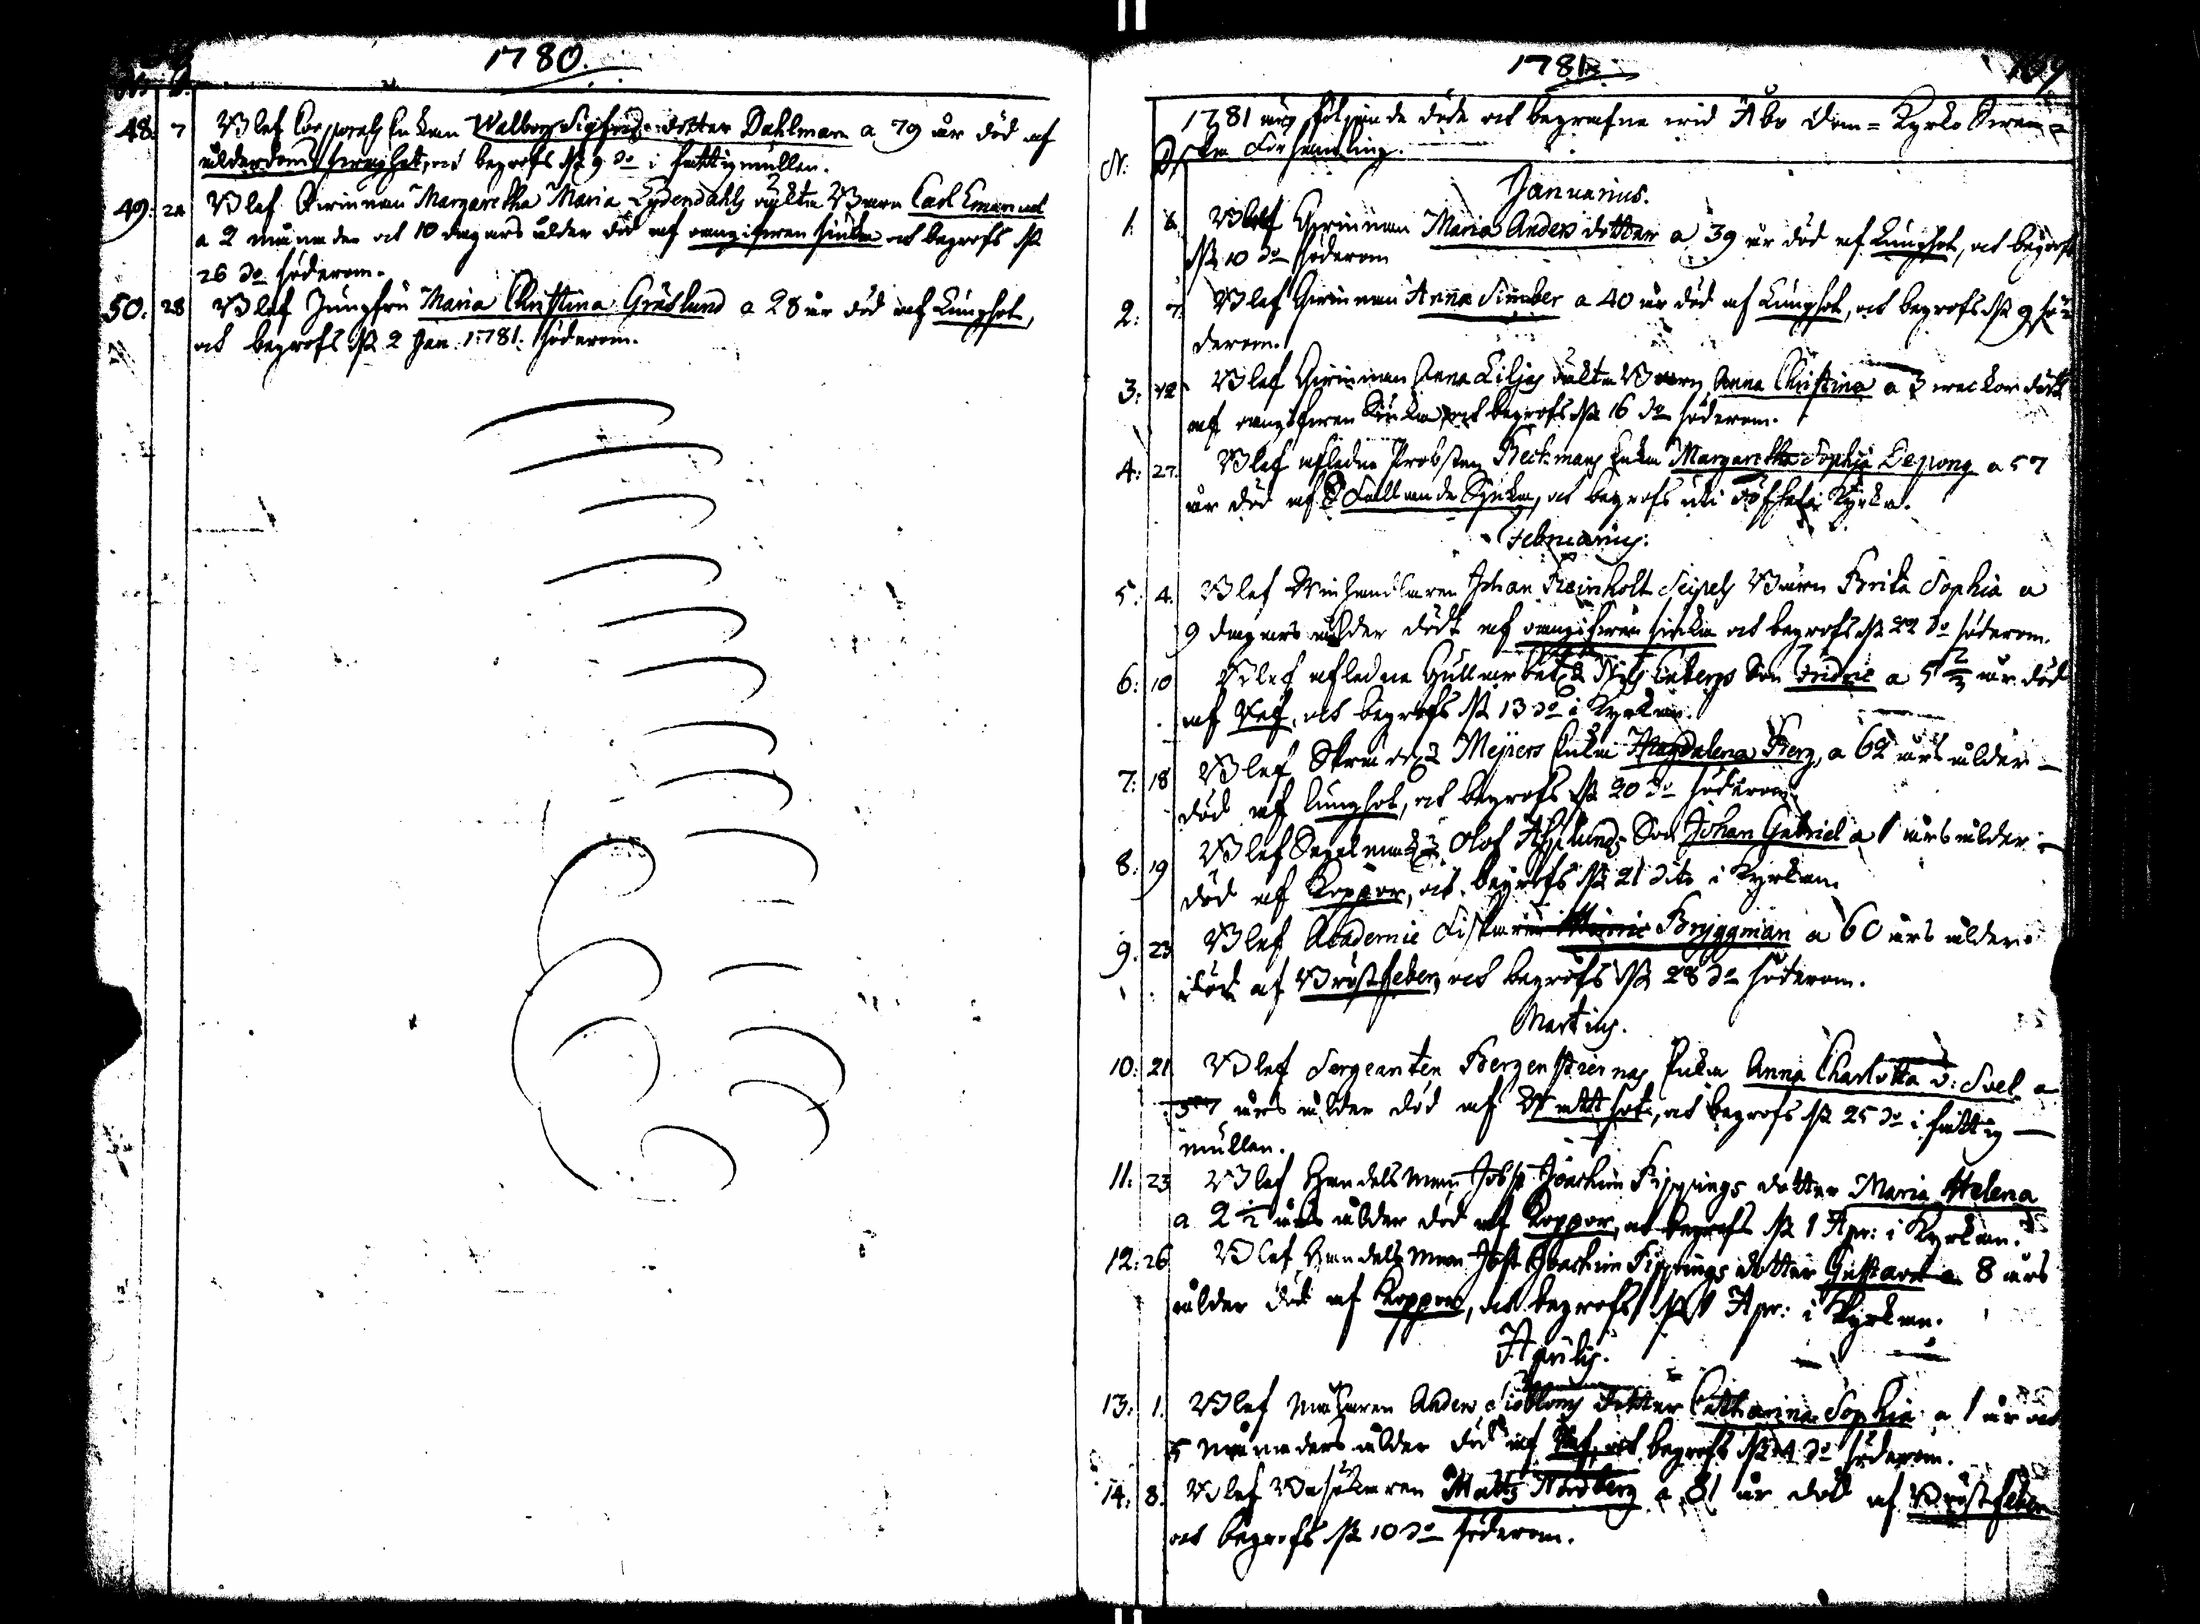 1780.
48. 7 Blef Corporals Enkan Walborg Sigfrids dotter Dahlman a 79 år död af
ålderdoms svaghet, och begrofs d. 9 do i fattigmullen.
49. 24 Blef Qvinnan Margaretha Maria Lydendahls oäkta Barn Carl Emanuel
a 2 månader och 10 dagars ålder död af okänd siukdom och begrofs d.
26 do söderom.
50. 28 Blef Jungfru Maria Christina Gräslund a 28 år död af Lungsot,
och begrofs d. 2 Jan. 1781. söderom.
1781.
1781 äro följande döde och begrafne vid Åbo Dom-Kyrko Swen-
ska Församling.
N. D.
Januarius.
1. 6. Blef Qvinnan Maria Anders dotter a 39 år död af Lungsot, och begrofs
d. 10 do söderom
2. 7. Blef Qvinnan Anna Simber a 40 år död af Lungsot, och begrofs d. 9 sö-
derom.
3. 12 Blef Qvinnan Anna Liljas oäkta Barn Anna Christina a 3 weckor dödt
af siukdom och begrofs d. 16 do söderom.
4. 27. Blef afledne Probsten Heckmans Enka Margaretha Sophia Lepong a 57
år död af Fallande Sjukan, och begrofs uti Kyrka.
Februarius.
5. 4. Blef Winhandlaren Johan Reinholt Seipels Barn Brita Sophia a
9 dagars ålder dödt af siukdom och begrofs d. 22 do söderom.
6. 10 Blef afledne Gullarbet. Nils Enbergs Son Fridric a 5 2/3 år död
af och begrofs d. 13 do i Kyrkan.
7. 18 Blef Skradd. Meijers Enka Magdalena Berg, a 62 års ålder
död af Lungsot, och begrofs d. 20 do söderom
8. 19 Blef Segelmak. Olof Asplunds Son Johan Gabriel a 1 års ålder
död af Koppor, och begrofs d. 21 dito i Kyrkan
9. 23 Blef Academie Fiskaren Bryggman a 60 års ålder
död af Bröstfeber, och begrofs d. 28 do söderom.
Martius.
10. 21 Blef Sergeanten Bergenstiernas Enka Anna Charlotta v: Svel a
57 års ålder död af Wattusot, och begrofs d. 25 do i fattig
mullen.
11. 23 Blef Handels Man Jobst Joachim Kippings dotter Maria Helena
a 2 1/2 års ålder död af Koppor, och begrofs d. 1 Apr: i Kyrkan.
12. 26 Blef Handels Man Jobst Joachim Kippings dotter Gustava a 8 års
ålder död af Koppor, och begrofs d. 1 Apr: i Kyrkan.
Aprilis.
13. 1. Blef Målaren Anders dotter Catharina Sophia a 1 år och
5 månaders ålder död af och begrofs d. 4 do söderom.
14. 8. Blef Besökaren Matts Nordberg a 81 år död af Bröstfeber
och begrofs d. 10 do söderom.